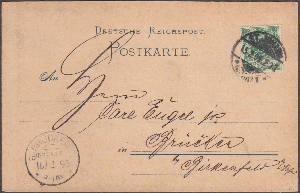 DEUTSCHE REICHSPOST.
POSTKARTE.
An
Herrn
Carl Engel jr
Brücken
b. Birkenfeld